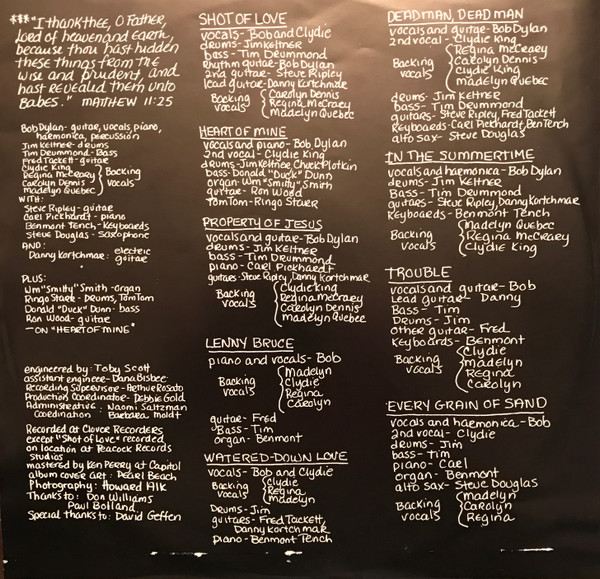 ***"I thank thee, O Father,
Lord of heaven and earth,
because thou hast hidden
these things from the
wise and prudent, and
hast revealed them unto
Babes." MATTHEW 11:25
Bob Dylan - guitar, vocals, piano,
harmonica, percussion
Jim Keltner - drums
Tim Drummond - Bass
Fred Tackett - guitar
Clydie King
Regina McCrary
Carolyn Dennis
Madelyn Quebec
Backing
Vocals
WITH:
Steve Ripley - guitar
Carl Pickhardt - piano
Benmont Tench - Keyboards
Steve Douglas - saxophone
AND:
Danny Kortchmar: electric
guitar
PLUS:
Wm "Smitty" Smith - organ
Ringo Starr - Drums, Tom Tom
Donald "Duck" Dunn - bass
Ron Wood - guitar
—ON "HEART OF MINE"
engineered by: Toby Scott
assistant engineer - Dana Bisbee
Recording Supervisor - Arthur Rosato
Production Coordinator - Debbie Gold
Administrative : Naomi Saltzman
Coordination : Barbara Moldt
Recorded at Clover Recorders
except "Shot of Love" recorded
on location at Peacock Records
studios
mastered by Ken Perry at Capitol
album cover art: Pearl Beach
Photography: Howard Alk
Thanks to: Don Williams
Paul Bolland
Special thanks to: David Geffen
SHOT OF LOVE
vocals - Bob and Clydie
drums - Jim Keltner
bass - Tim Drummond
Rhythm guitar - Bob Dylan
2nd guitar - Steve Ripley
lead guitar - Danny Kortchmar
Backing
vocals
Carolyn Dennis
Regina McCrary
Madelyn Quebec
HEART OF MINE
vocals and piano - Bob Dylan
2nd vocal - Clydie King
drums - Jim Keltner, Chuck Plotkin
bass - Donald "Duck" Dunn
organ Wm "Smitty" Smith
guitar - Ron Wood
Tom Tom - Ringo Starr
PROPERTY OF JESUS
vocals and guitar - Bob Dylan
drums - Jim Keltner
bass - Tim Drummond
piano - Carl Pickhardt
guitars - Steve Ripley, Danny Kortchmar
Backing
vocals
Clydie King
Regina McCrary
Carolyn Dennis
Madelyn Quebec
LENNY BRUCE
piano and vocals - Bob
Backing
vocals
Madelyn
Clydie
Regina
Carolyn
guitar - Fred
Bass - Tim
organ - Benmont
WATERED-DOWN LOVE
vocals - Bob and Clydie
Backing
vocals
Clydie
Regina
Madelyn
Drums - Jim
guitars - Fred Tackett,
Danny Kortchmar
piano - Benmont Tench
DEAD MAN, DEAD MAN
vocals and guitar - Bob Dylan
2nd vocal - Clydie King
Backing
vocals
Regina McCrary
Carolyn Dennis
Clydie King
Madelyn Quebec
drums - Jim Keltner
bass - Tim Drummond
guitars - Steve Ripley, Fred Tackett
Keyboards - Carl Pickhardt, Ben Tench
alto sax - Steve Douglas
IN THE SUMMERTIME
vocals and harmonica - Bob Dylan
drums - Jim Keltner
Bass - Tim Drummond
guitars - Steve Ripley, Danny Kortchmar
Keyboards - Benmont Tench
Backing
vocals
Madelyn Quebec
Regina McCrary
Clydie King
TROUBLE
vocals and guitar - Bob
Lead guitar - Danny
Bass - Tim
Drums - Jim
other guitar - Fred
Keyboards - Benmont
Backing
vocals
Clydie
Madelyn
Regina
Carolyn
EVERY GRAIN OF SAND
vocals and harmonica - Bob
2nd vocal - Clydie
drums - Jim
bass - Tim
piano - Carl
organ - Benmont
alto sax - Steve Douglas
Backing
vocals
Madelyn
Carolyn
Regina